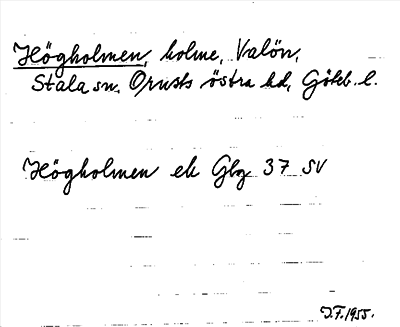 Högholmen, holme, Valön,
Stala sn. Orusts östra hd, Göteb. l.
Högholmen ek Gbg 37 SV
J.F. 1955.